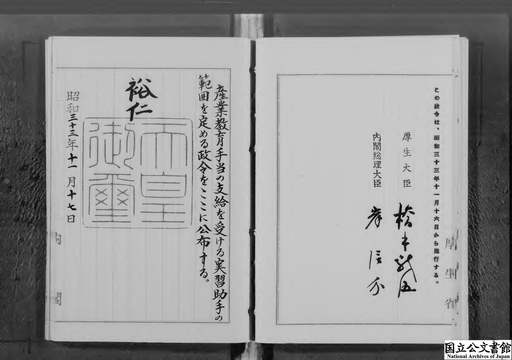 この政令は、昭和三十三年十一月十六日から施行する。
厚生大臣
橋本龍伍
内閣総理大臣
岸信介
厚生省
産業教育手当の支給を受ける実習助手の
範囲を定める政令をここに公布する。
裕仁
天皇
御璽
昭和三十三年十一月十七日
内閣
国立公文書館
National Archives of Japan